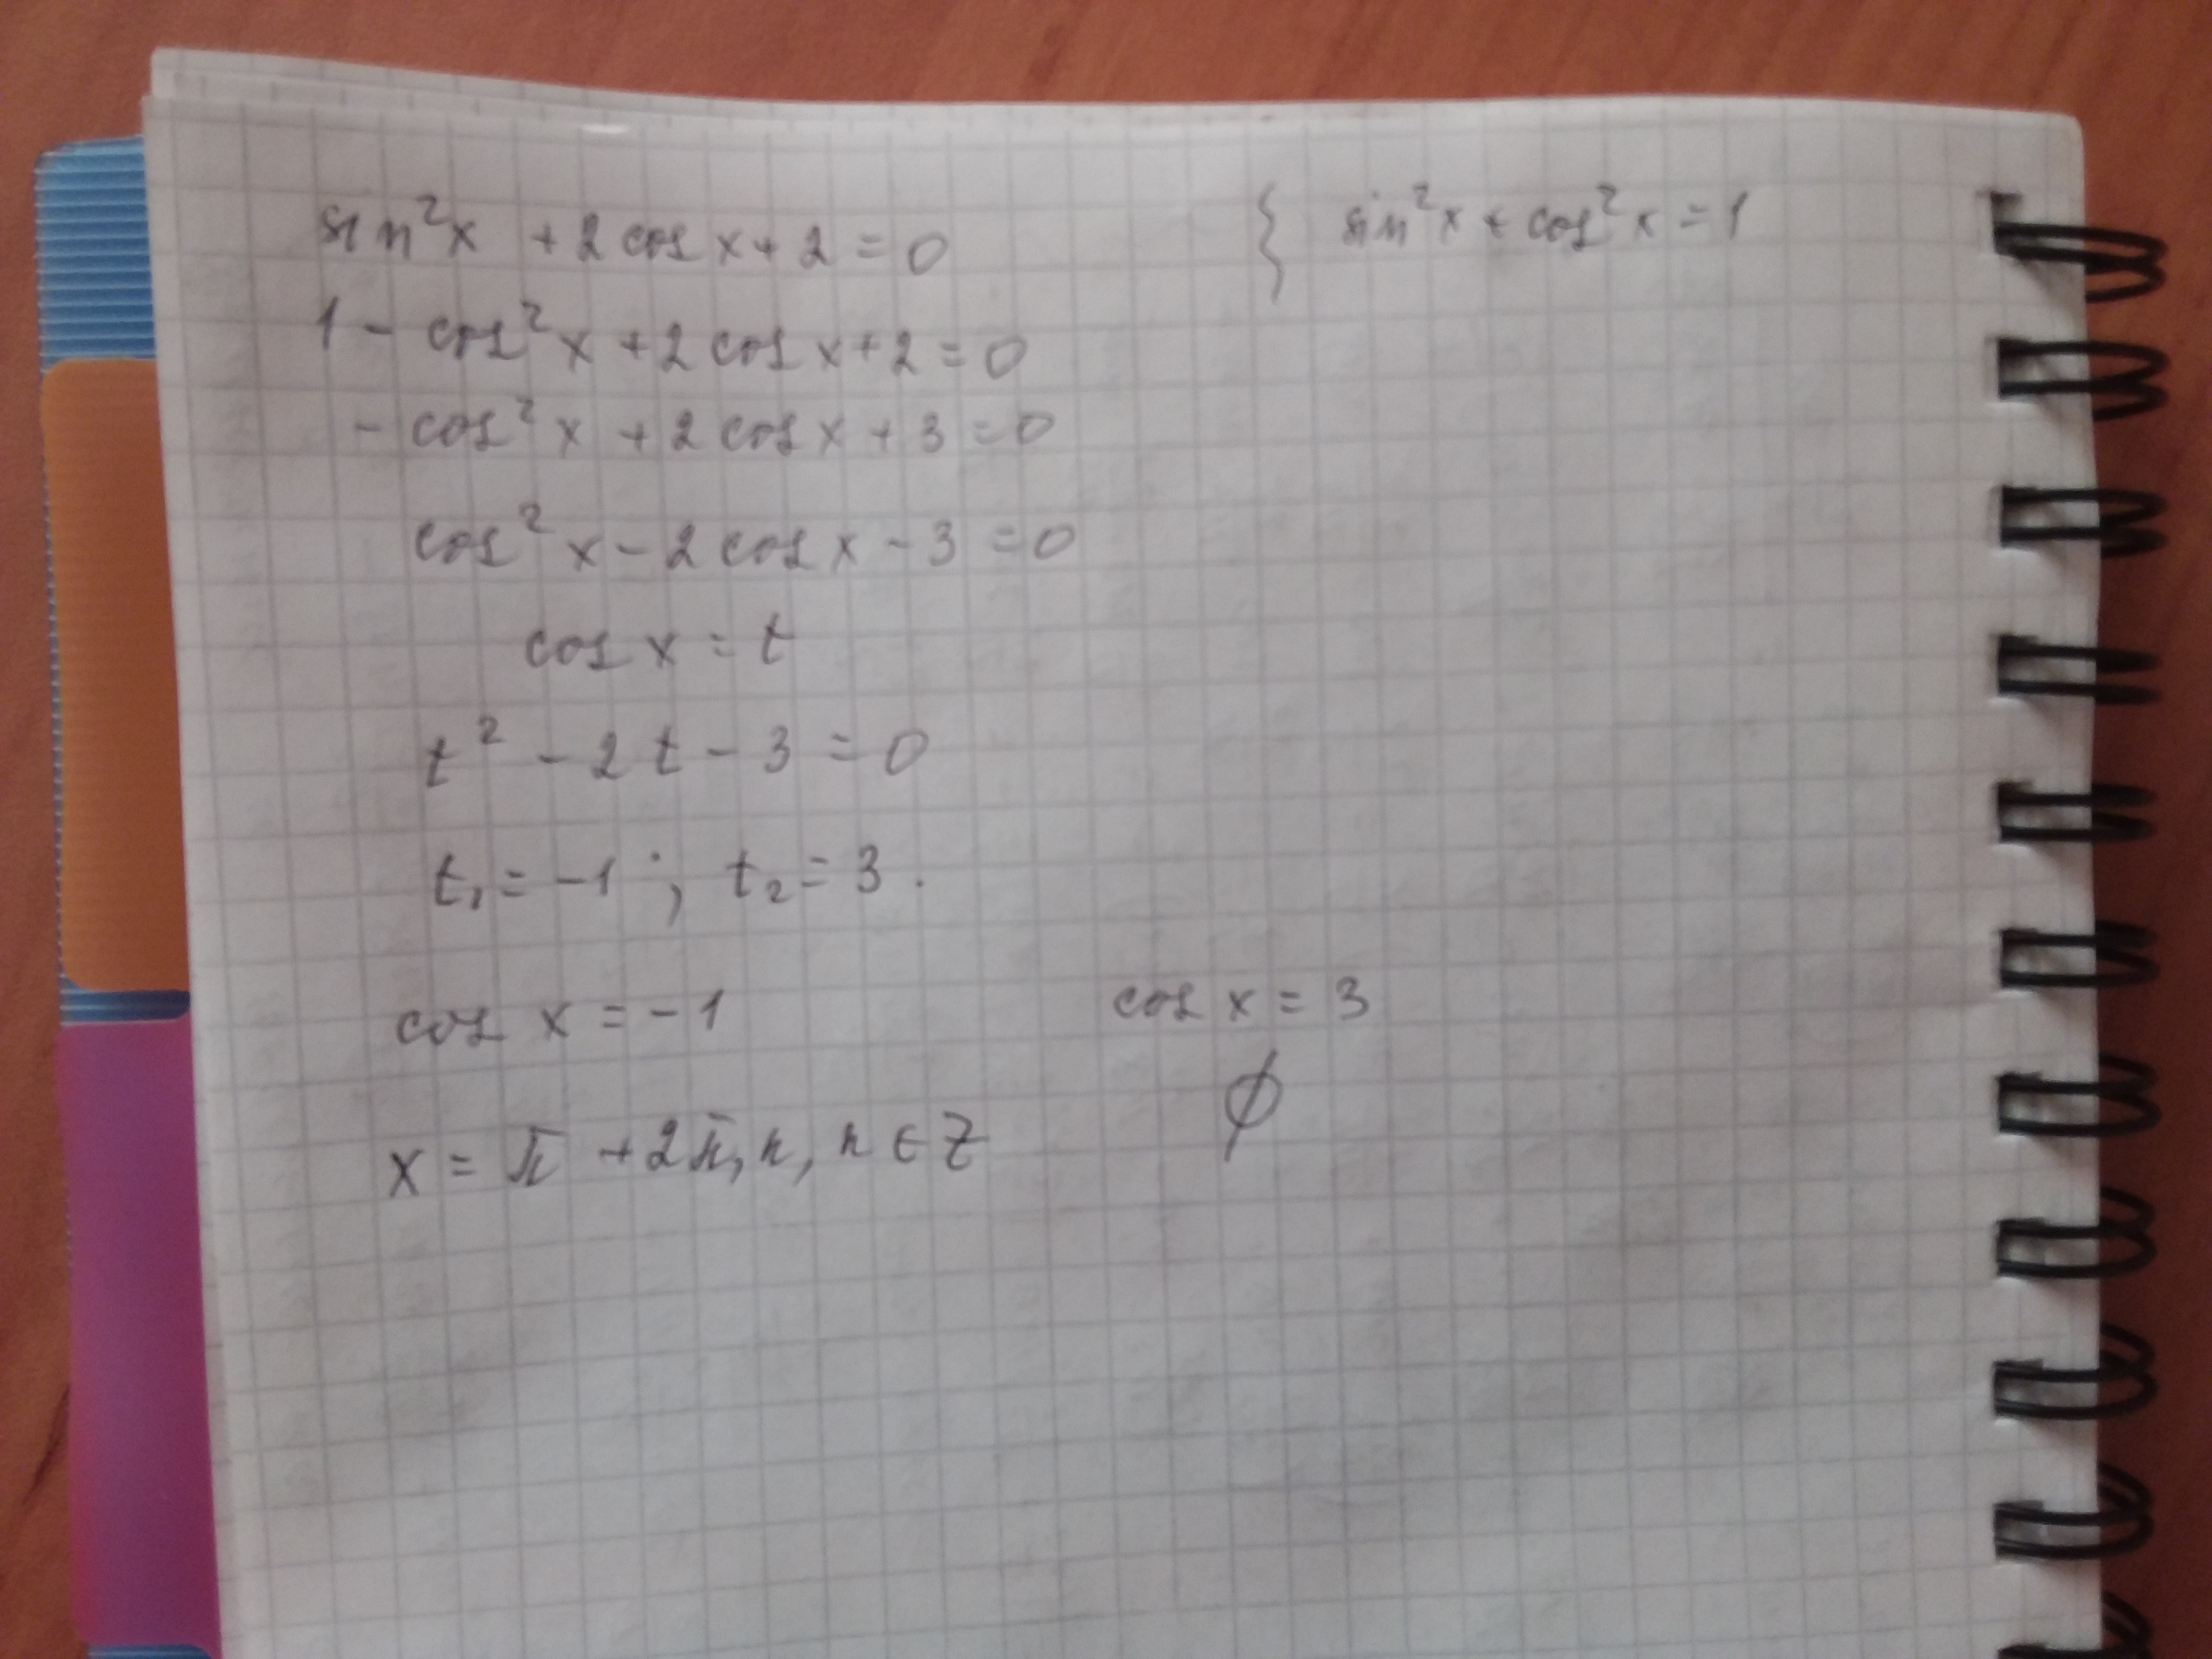 sin²x + 2 cos x + 2 = 0 { sin²x + cos²x = 1
1 - cos²x + 2 cos x + 2 = 0
- cos²x + 2 cos x + 3 = 0
cos²x - 2 cos x - 3 = 0
cos x = t
t² - 2t - 3 = 0
t₁ = -1 ; t₂ = 3 .
cos x = -1 cos x = 3
∅
x = π + 2π n, n ∈ Z